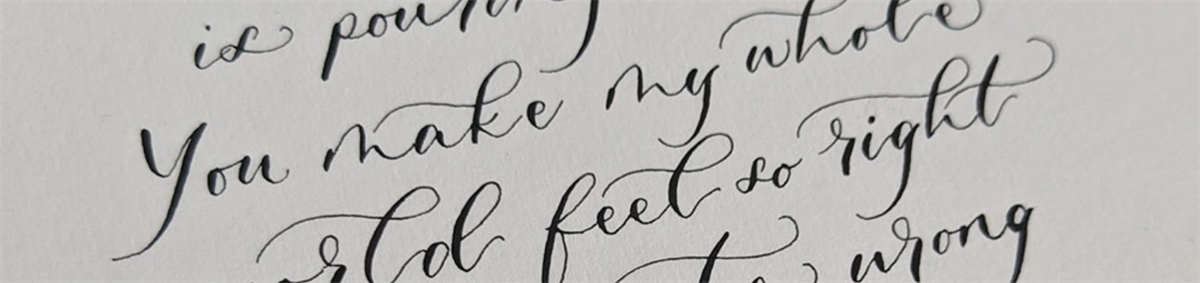 is pouring
You make my whole
world feel so right
wrong